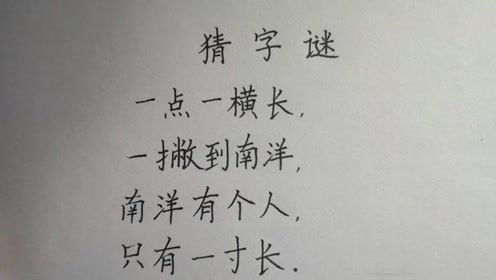 猜字谜
一点一横长，
一撇到南洋，
南洋有个人，
只有一寸长．